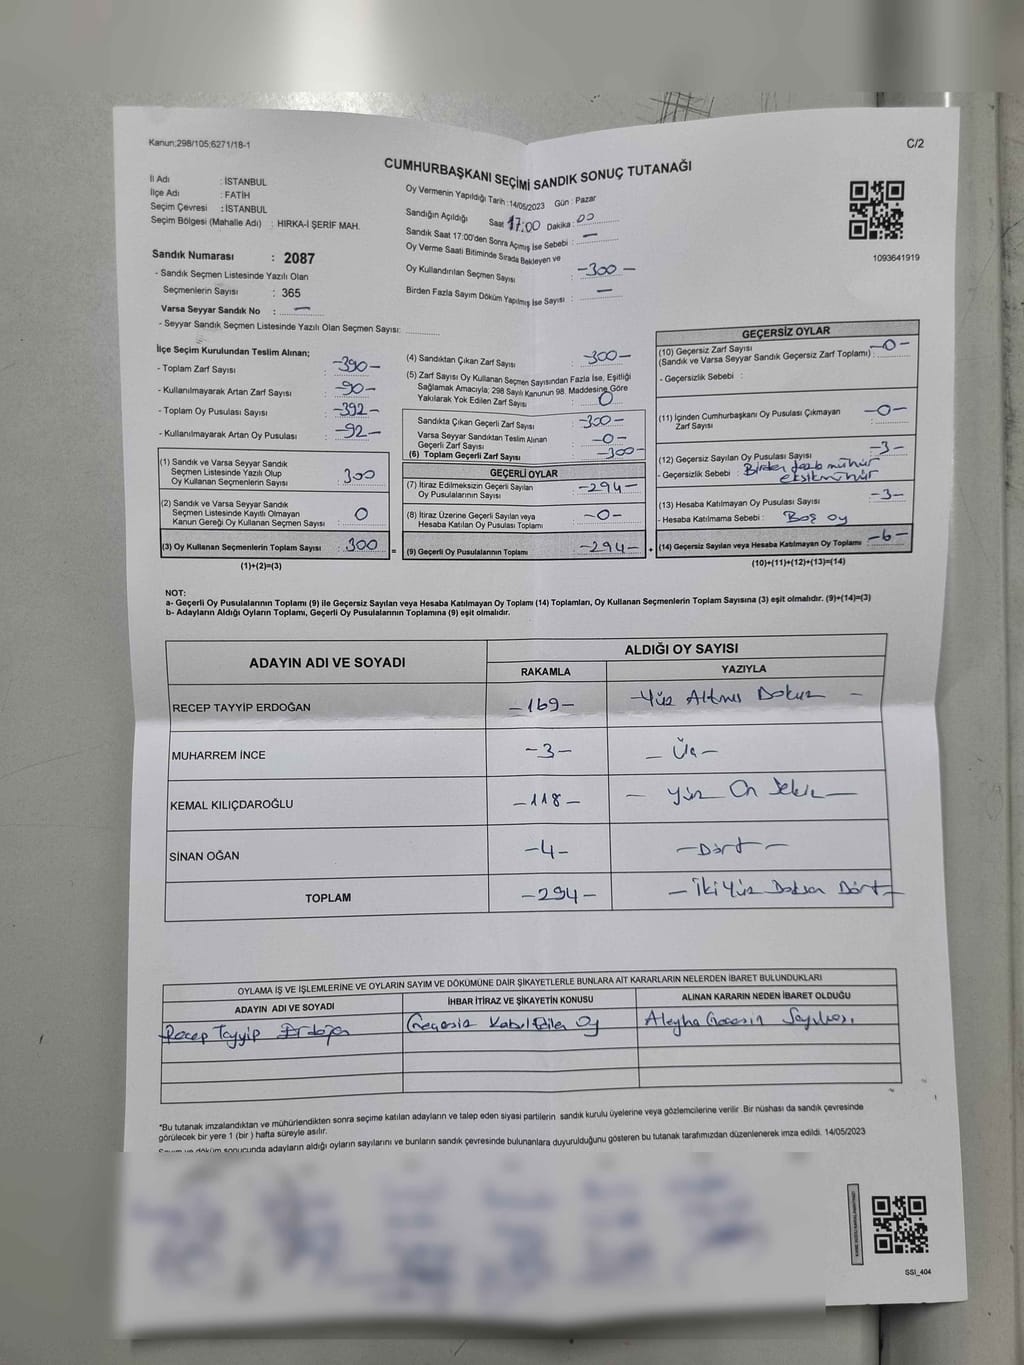 Kanun;298/105;6271/18-1
C/2
CUMHURBAŞKANI SEÇİMİ SANDIK SONUÇ TUTANAĞI
İl Adı : İSTANBUL
İlçe Adı : FATİH
Seçim Çevresi : İSTANBUL
Seçim Bölgesi (Mahalle Adı) : HIRKA-İ ŞERİF MAH.
Oy Vermenin Yapıldığı Tarih :14/05/2023 Gün : Pazar
Sandığın Açıldığı Saat 17:00 Dakika : 00
Sandık Saat 17:00'den Sonra Açımış İse Sebebi : —
Oy Verme Saati Bitiminde Sırada Bekleyen ve
Oy Kullandırılan Seçmen Sayısı : -300-
Birden Fazla Sayım Döküm Yapılmış İse Sayısı : —
1093641919
Sandık Numarası : 2087
- Sandık Seçmen Listesinde Yazılı Olan
Seçmenlerin Sayısı : 365
Varsa Seyyar Sandık No : —
- Seyyar Sandık Seçmen Listesinde Yazılı Olan Seçmen Sayısı:
İlçe Seçim Kurulundan Teslim Alınan;
- Toplam Zarf Sayısı : -390-
- Kullanılmayarak Artan Zarf Sayısı : -90-
- Toplam Oy Pusulası Sayısı : -392-
- Kullanılmayarak Artan Oy Pusulası : -92-
(1) Sandık ve Varsa Seyyar Sandık
Seçmen Listesinde Yazılı Olup
Oy Kullanan Seçmenlerin Sayısı : 300
(2) Sandık ve Varsa Seyyar Sandık
Seçmen Listesinde Kayıtlı Olmayan
Kanun Gereği Oy Kullanan Seçmen Sayısı : 0
(3) Oy Kullanan Seçmenlerin Toplam Sayısı : 300 =
(1)+(2)=(3)
(4) Sandıktan Çıkan Zarf Sayısı : -300-
(5) Zarf Sayısı Oy Kullanan Seçmen Sayısından Fazla İse, Eşitliği
Sağlamak Amacıyla; 298 Sayılı Kanunun 98. Maddesine Göre
Yakılarak Yok Edilen Zarf Sayısı : 0
Sandıkta Çıkan Geçerli Zarf Sayısı : -300-
Varsa Seyyar Sandıktan Teslim Alınan
Geçerli Zarf Sayısı : -0-
(6) Toplam Geçerli Zarf Sayısı : -300-
GEÇERLİ OYLAR
(7) İtiraz Edilmeksizin Geçerli Sayılan
Oy Pusulalarının Sayısı : -294-
(8) İtiraz Üzerine Geçerli Sayılan veya
Hesaba Katılan Oy Pusulası Toplamı : -0-
(9) Geçerli Oy Pusulalarının Toplamı : -294- +
GEÇERSİZ OYLAR
(10) Geçersiz Zarf Sayısı
(Sandık ve Varsa Seyyar Sandık Geçersiz Zarf Toplamı) : -0-
- Geçersizlik Sebebi :
(11) İçinden Cumhurbaşkanı Oy Pusulası Çıkmayan
Zarf Sayısı : -0-
(12) Geçersiz Sayılan Oy Pusulası Sayısı : -3-
- Geçersizlik Sebebi : Birden fazla mühür
eksik mühür
(13) Hesaba Katılmayan Oy Pusulası Sayısı : -3-
- Hesaba Katılmama Sebebi : Boş oy
(14) Geçersiz Sayılan veya Hesaba Katılmayan Oy Toplamı : -6-
(10)+(11)+(12)+(13)=(14)
NOT:
a- Geçerli Oy Pusulalarının Toplamı (9) ile Geçersiz Sayılan veya Hesaba Katılmayan Oy Toplamı (14) Toplamları, Oy Kullanan Seçmenlerin Toplam Sayısına (3) eşit olmalıdır. (9)+(14)=(3)
b- Adayların Aldığı Oyların Toplamı, Geçerli Oy Pusulalarının Toplamına (9) eşit olmalıdır.
ADAYIN ADI VE SOYADI
ALDIĞI OY SAYISI
RAKAMLA YAZIYLA
RECEP TAYYİP ERDOĞAN -169- -Yüz Altmış Dokuz -
MUHARREM İNCE -3- - Üç -
KEMAL KILIÇDAROĞLU -118- - Yüz On Sekiz -
SİNAN OĞAN -4- -Dört-
TOPLAM -294- -İki Yüz Doksan Dört-
OYLAMA İŞ VE İŞLEMLERİNE VE OYLARIN SAYIM VE DÖKÜMÜNE DAİR ŞİKAYETLERLE BUNLARA AİT KARARLARIN NELERDEN İBARET BULUNDUKLARI
ADAYIN ADI VE SOYADI İHBAR İTİRAZ VE ŞİKAYETİN KONUSU ALINAN KARARIN NEDEN İBARET OLDUĞU
Recep Tayyip Erdoğan Geçersiz Kabul Edilen Oy Aleyhe Geçersiz Sayılması.
*Bu tutanak imzalandıktan ve mühürlendikten sonra seçime katılan adayların ve talep eden siyasi partilerin sandık kurulu üyelerine veya gözlemcilerine verilir. Bir nüshası da sandık çevresinde
görülecek bir yere 1 (bir ) hafta süreyle asılır.
Sayım ve döküm sonucunda adayların aldığı oyların sayılarını ve bunların sandık çevresinde bulunanlara duyurulduğunu gösteren bu tutanak tarafımızdan düzenlenerek imza edildi. 14/05/2023
SSI_404